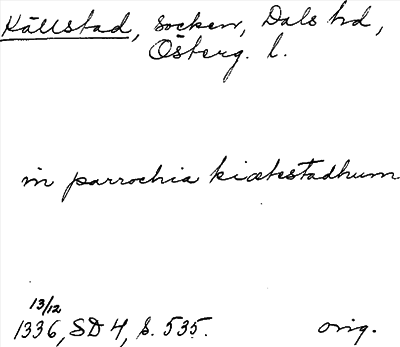 Källstad, socken, Dals hd,
Österg. l.
in parrochia kiælestadhum
13/12
1336, SD 4, s. 535. orig.